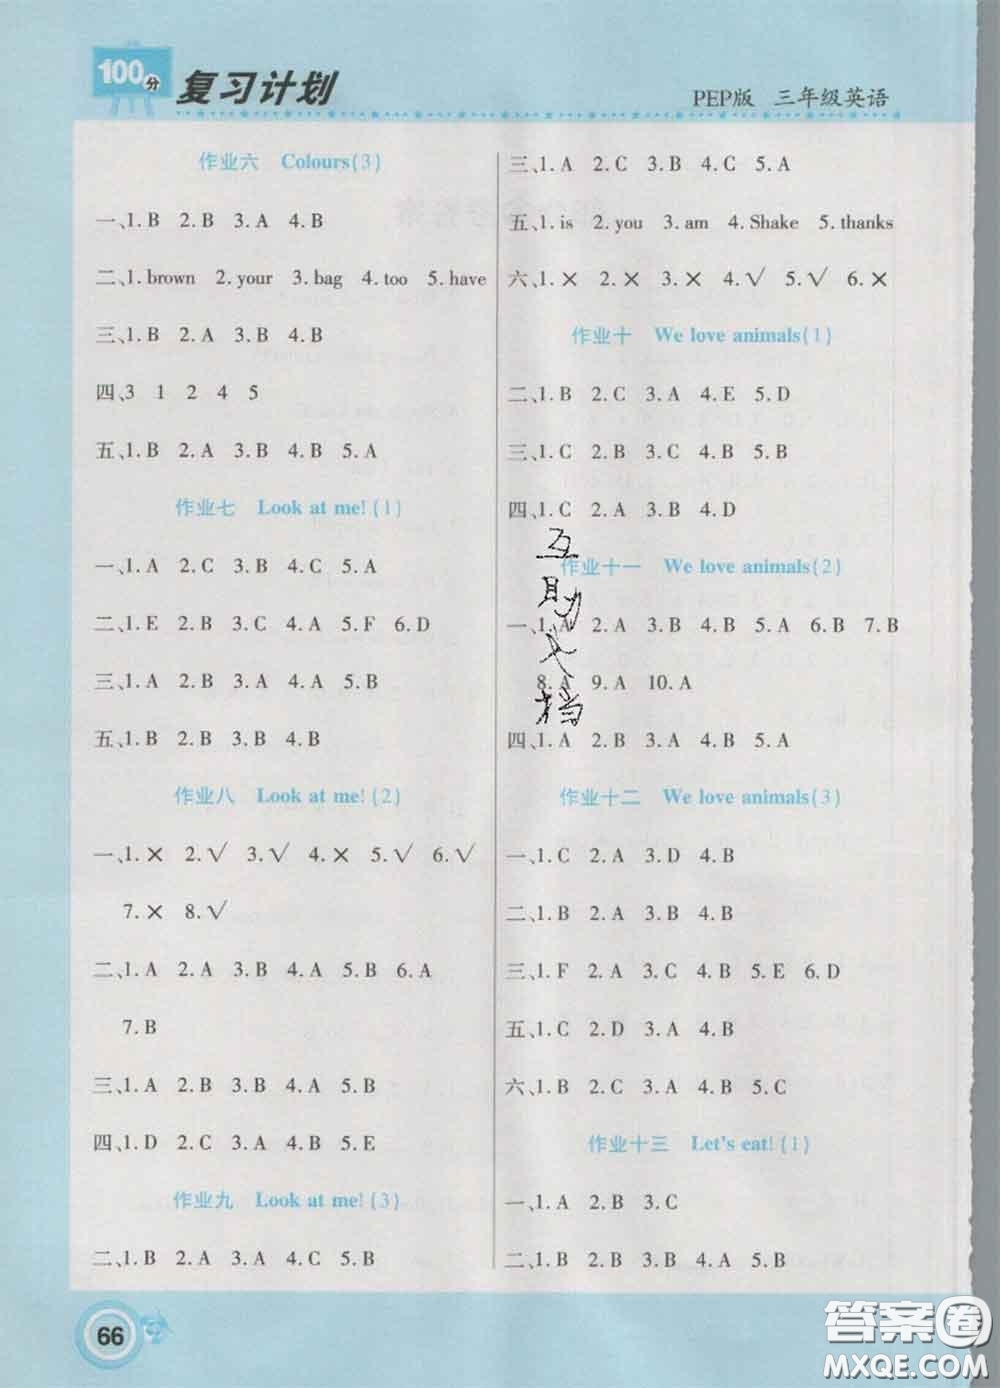 100分
复习计划
PEP版 三年级英语
作业六 Colours(3)
一、1. B 2. B 3. A 4. B
二、1. brown 2. your 3. bag 4. too 5. have
三、1. B 2. A 3. B 4. B
四、3 1 2 4 5
五、1. B 2. A 3. B 4. B 5. A
作业七 Look at me! (1)
一、1. A 2. C 3. B 4. C 5. A
二、1. E 2. B 3. C 4. A 5. F 6. D
三、1. A 2. B 3. A 4. A 5. B
五、1. B 2. B 3. B 4. B
作业八 Look at me! (2)
一、1. × 2. √ 3. √ 4. × 5. √ 6. √
7. × 8. √
二、1. A 2. A 3. B 4. A 5. B 6. A
7. B
三、1. A 2. B 3. B 4. A 5. B
四、1. D 2. C 3. A 4. B 5. E
作业九 Look at me! (3)
二、1. B 2. A 3. A 4. C 5. B
三、1. A 2. C 3. B 4. C 5. A
五、1. is 2. you 3. am 4. Shake 5. thanks
六、1. × 2. × 3. × 4. √ 5. √ 6. ×
作业十 We love animals(1)
二、1. B 2. C 3. A 4. E 5. D
三、1. C 2. B 3. A 4. B 5. B
四、1. C 2. A 3. B 4. D
作业十一 We love animals(2)
一、1. A 2. A 3. B 4. B 5. A 6. B 7. B
8. A 9. A 10. A
四、1. A 2. B 3. B 4. B 5. A
作业十二 We love animals(3)
一、1. C 2. A 3. D 4. B
二、1. B 2. A 3. B 4. B
三、1. F 2. A 3. C 4. B 5. E 6. D
五、1. C 2. D 3. A 4. B
六、1. B 2. C 3. A 4. B 5. C
作业十三 Let's eat! (1)
一、1. A 2. B 3. C
二、1. B 2. B 3. B 4. A 5. B
互助文档
66
答案圈
MXQE.COM